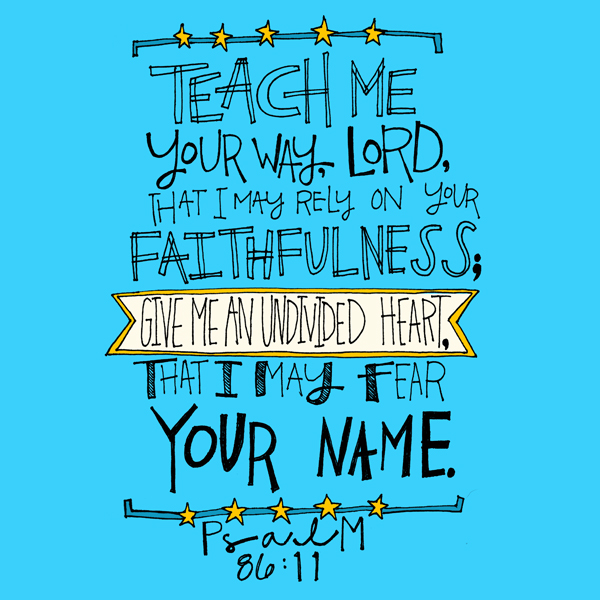 TEACH ME
YOUR WAY, LORD,
THAT I MAY RELY ON YOUR
FAITHFULNESS;
GIVE ME AN UNDIVIDED HEART,
THAT I MAY FEAR
YOUR NAME.
PsalM
86:11